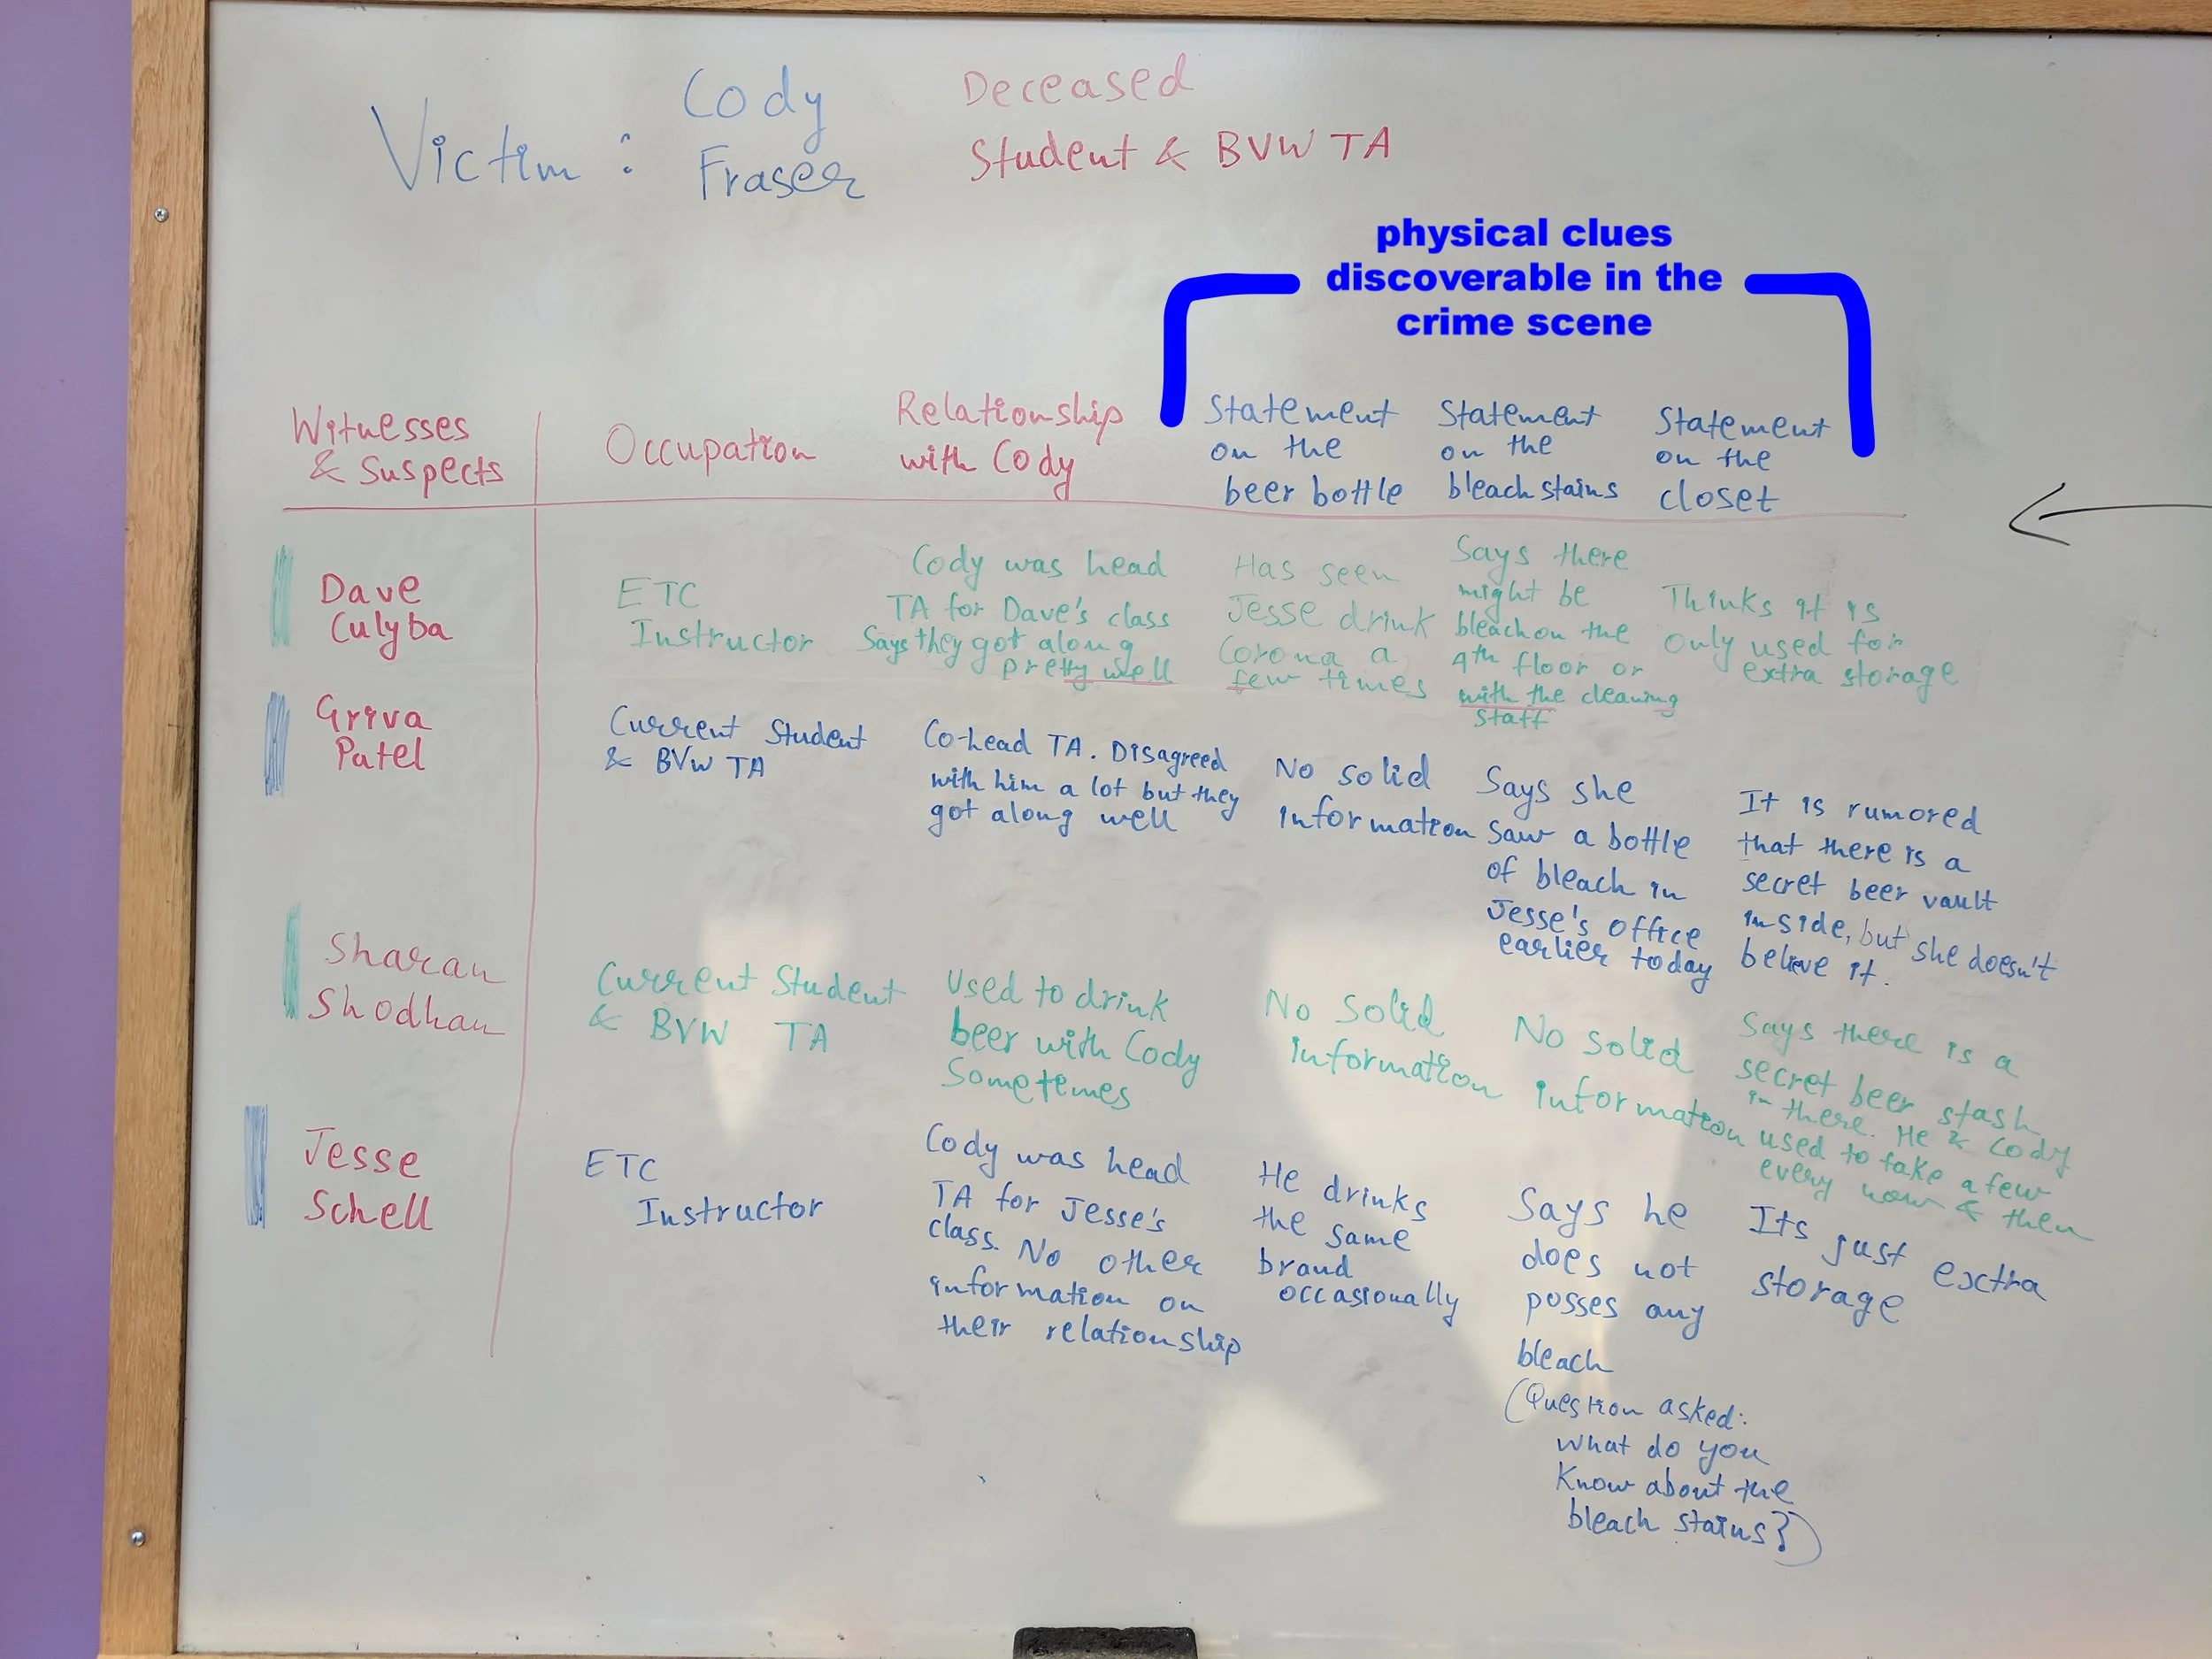 Victim : Cody Fraser
Deceased
Student & BVW TA
physical clues
discoverable in the
crime scene
Witnesses
& Suspects
Occupation
Relationship
with Cody
Statement
on the
beer bottle
Statement
on the
bleach stains
Statement
on the
closet
Dave
Culyba
ETC
Instructor
Cody was head
TA for Dave's class
Says they got along
pretty well
Has seen
Jesse drink
Corona a
few times
Says there
might be
bleach on the
4th floor or
with the cleaning
staff
Thinks it is
only used for
extra storage
Griva
Patel
Current Student
& BVW TA
Co-head TA. Disagreed
with him a lot but they
got along well
No solid
information
Says she
saw a bottle
of bleach in
Jesse's office
earlier today
It is rumored
that there is a
secret beer vault
inside, but she doesn't
believe it.
Sharan
Shodhan
Current Student
& BVW TA
Used to drink
beer with Cody
Sometimes
No solid
information
No solid
information
Says there is a
secret beer stash
in there. He & Cody
used to take a few
every now & then
Jesse
Schell
ETC
Instructor
Cody was head
TA for Jesse's
class. No other
information on
their relationship
He drinks
the same
brand
occasionally
Says he
does not
posses any
bleach
(Question asked:
What do you
Know about the
bleach stains?)
Its just extra
storage